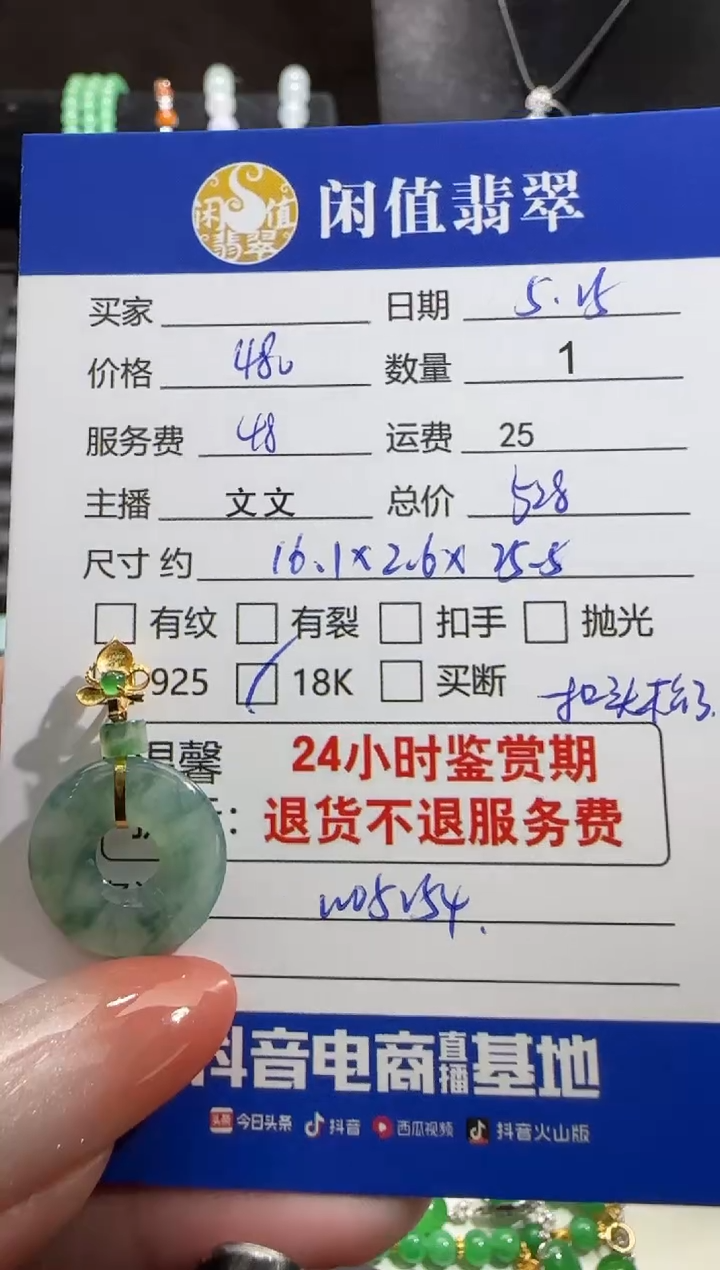 闲值翡翠 闲值翡翠
买家 日期 5.15
价格 480 数量 1
服务费 48 运费 25
主播 文文 总价 528
尺寸 约 16.1×2.6×25.5
有纹 有裂 扣手 抛光
925 18K 买断
扣头松了.
温馨 24小时鉴赏期
: 退货不退服务费
抖音电商直播基地
头条 今日头条 抖音 西瓜视频 抖音火山版